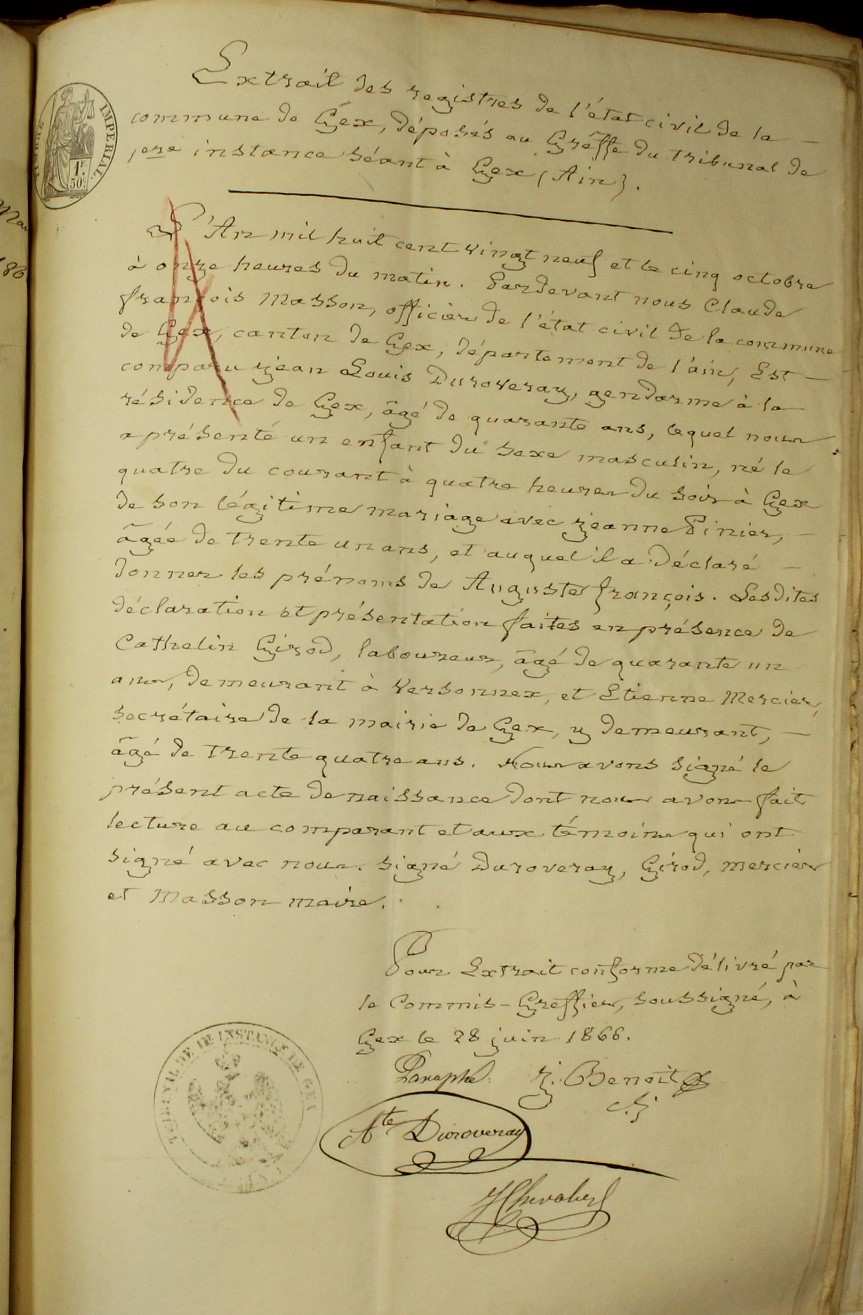 Extrait des registres de l'état civil de la
commune de Gex, déposés au Greffe du tribunal de
1ere instance séant à Gex (Ain).
IMPERIAL
1F.
50C.
L'An mil huit cent vingt neuf et le cinq octobre
à onze heures du matin. Pardevant nous Claude
françois Masson, officier de l'état civil de la commune
de Gex, canton de Gex, département de l'ain, Est
comparu jean Louis Duroveray, gendarme à la
résidence de Gex, âgé de quarante ans, lequel nous
a présenté un enfant du sexe masculin, né le
quatre du courant à quatre heures du soir à Gex
de son légitime mariage avec jeanne Pinier,
âgée de trente un ans, et auquel il a déclaré
donner les prénoms de Auguste françois. Lesdites
déclaration et présentation faites en présence de
Cathelin Girod, laboureur, âgé de quarante un
ans, demeurant à Versonnex, et Etienne Mercier,
secrétaire de la mairie de Gex, y demeurant,
âgé de trente quatre ans. Nous avons signé le
présent acte de naissance dont nous avons fait
lecture au comparant et aux témoins qui ont
signé avec nous. signé Duroveray, Girod, mercier
et Masson maire.
Pour Extrait conforme délivré par
le Commis-Greffier, soussigné, à
Gex le 28 juin 1866.
Paraphé. J. Benoit
Ate Duroveray
TRIBUNAL DE 1RE INSTANCE DE GEX